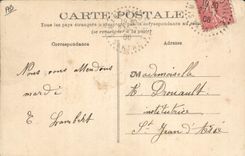 AD
CARTE POSTALE
Tous les pays étrangers n'acceptent pas la correspondance au
(se renseigner à la poste)
Correspondance
Adresse
Nous vous attendons
mardi
E. Lambert
Mademoiselle
Drouault
institutrice
St Jean d'